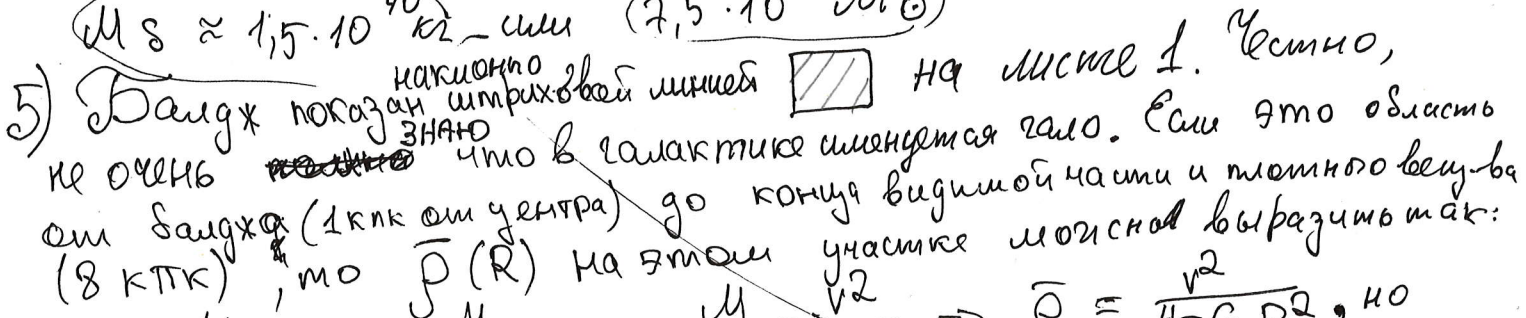 M s ≈ 1,5 · 10⁴⁰ кг - или (7,5 · 10
5) Балдж показан наклонно штриховой линией на листе 1. Честно,
не очень знаю что в галактике именуется гало. Если это область
от балджа (1 кпк от центра) до конца видимой части и плотного вещ-ва
(8 кпк), то ρ̄ (R) на этом участке можно выразить так:
M M v2 ρ̄ = v² , но